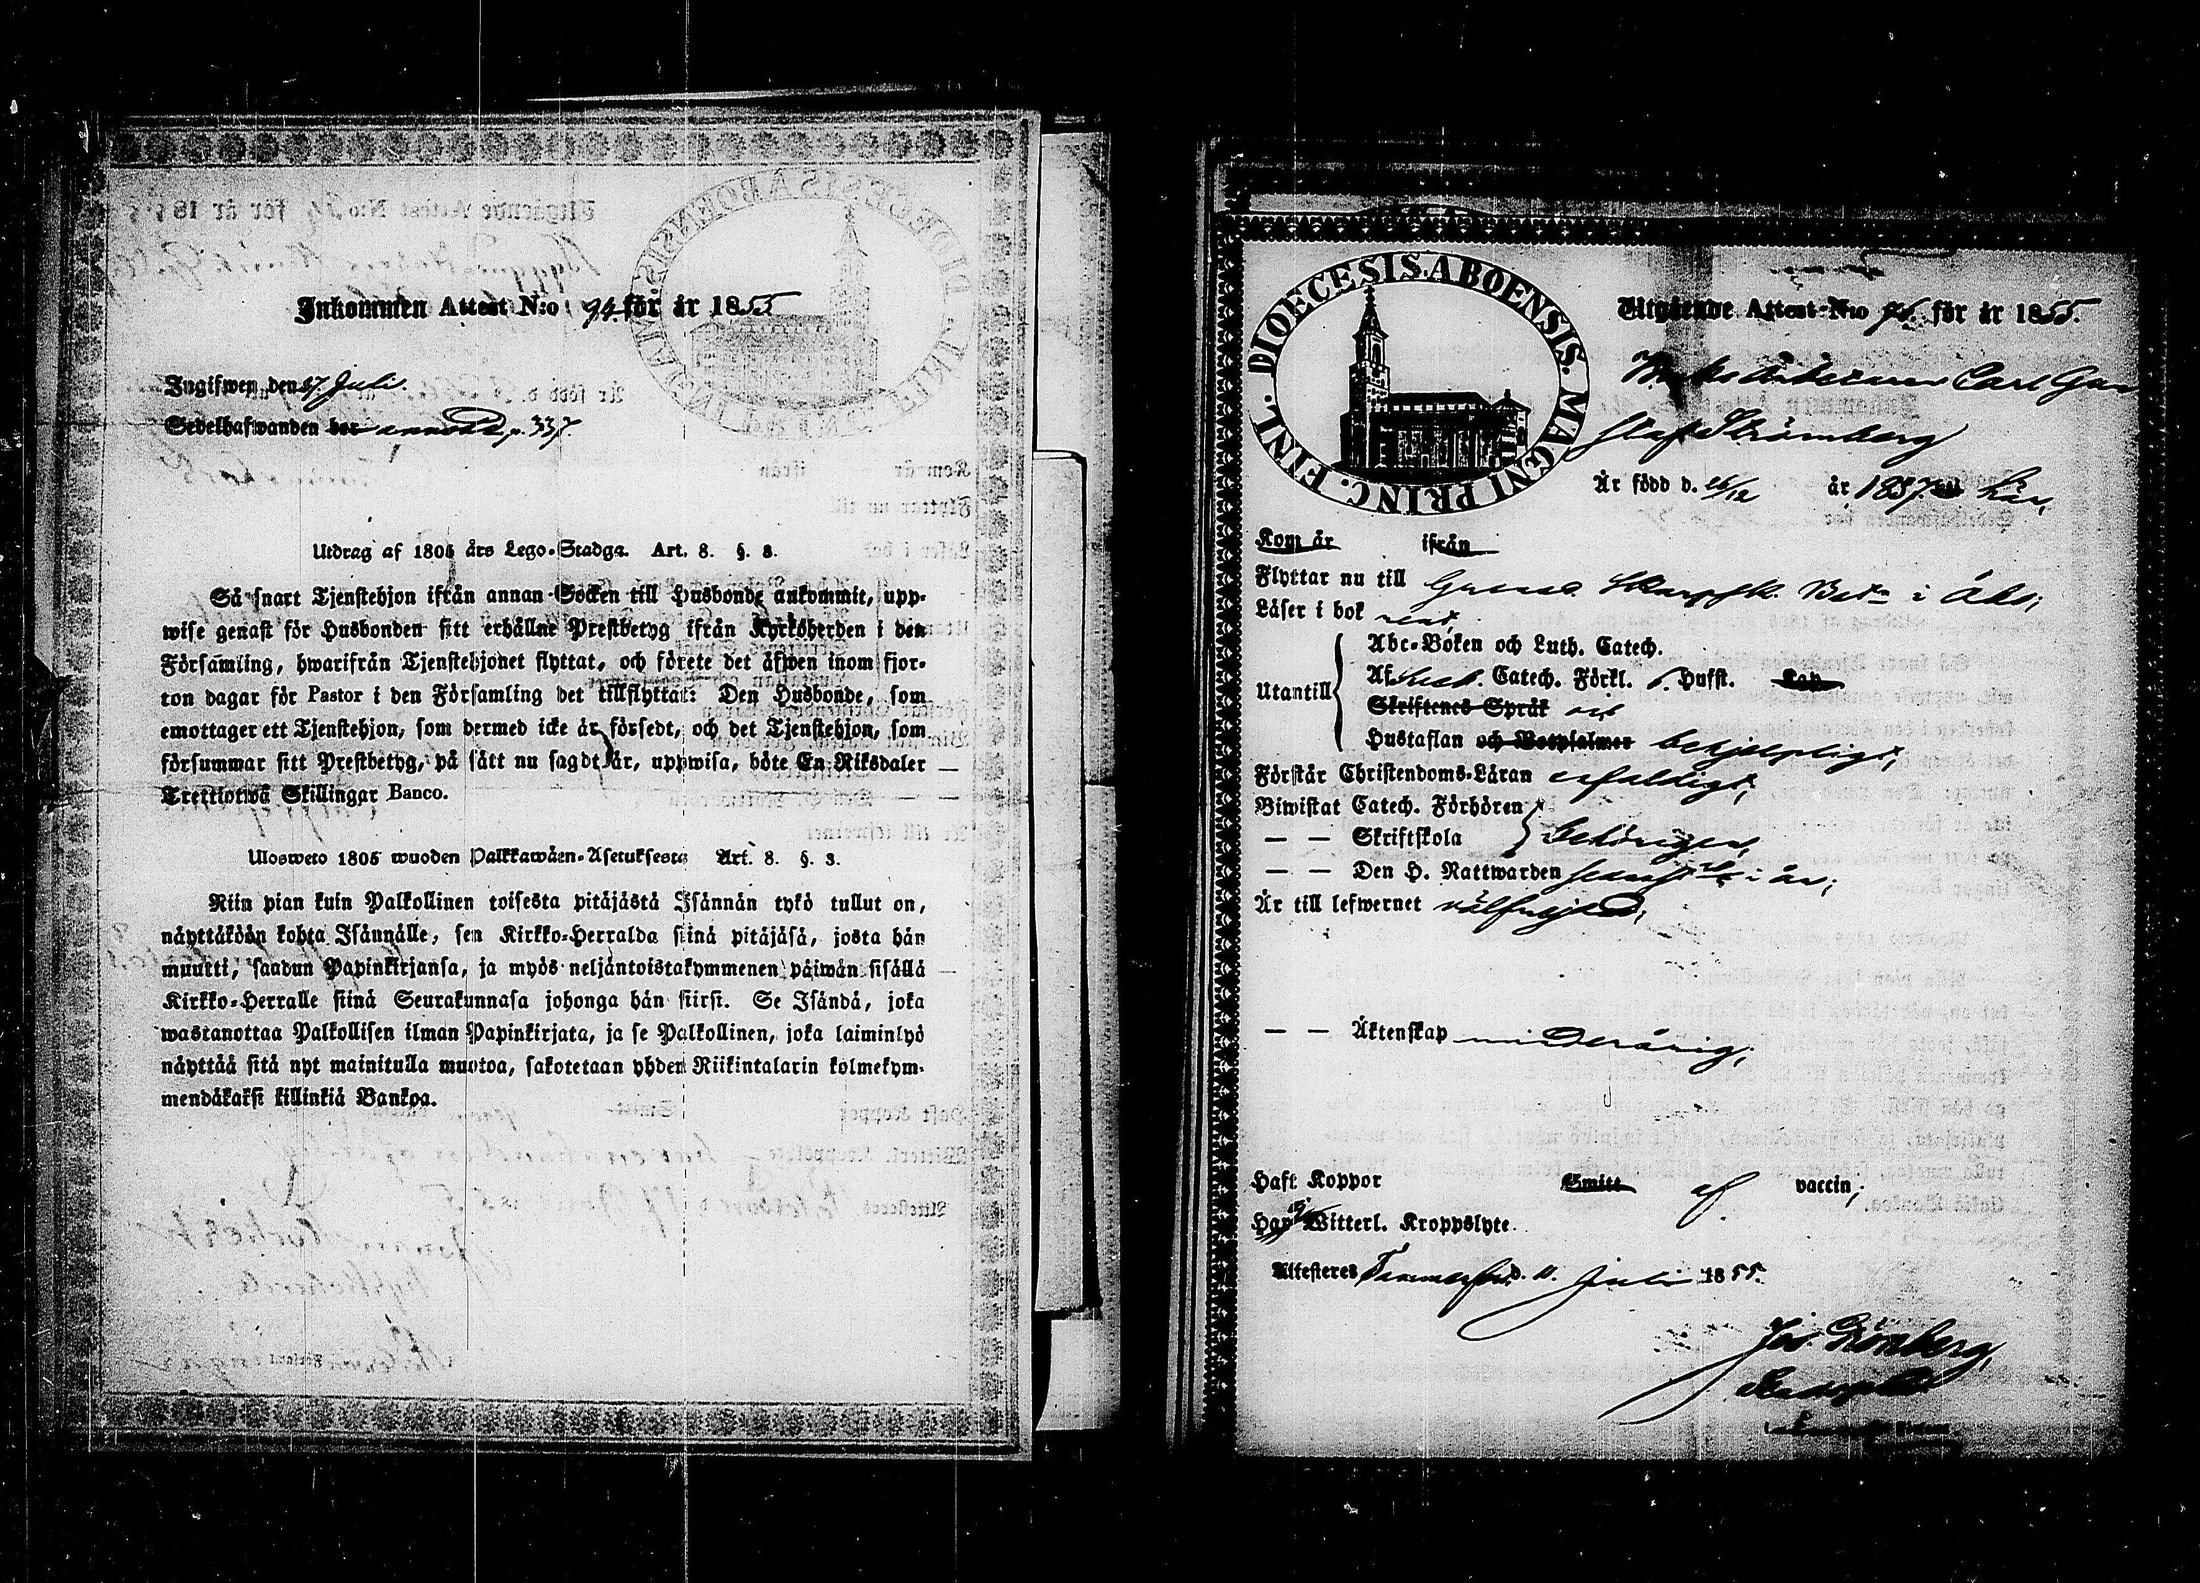 Inkommen Attest N:o 94 för år 1855
Ingifwen den 17 Juli.
Sedelhafwanden bor p. 337.
Utdrag af 1805 års Lego-Stadga. Art. 8. §. 3.
Så snart Tjenstehjon ifrån annan Socken till Husbonde ankommit, upp-
wise genast för Husbonden sitt erhållne Prestbetyg ifrån Kyrkoherden i den
Församling, hwarifrån Tjenstehjonet flyttat, och förete det äfwen inom fjor-
ton dagar för Pastor i den Församling det tillflyttat: Den Husbonde, som
emottager ett Tjenstehjon, som dermed icke är försedt, och det Tjenstehjon, som
försummar sitt Prestbetyg, på sätt nu sagdt är, uppwisa, böte En Riksdaler
Trettiotwå Skillingar Banco.
Ulosweto 1805 wuoden Palkkawäen-Asetuksesta Art. 8. §. 3.
Niin pian kuin Palkollinen toisesta pitäjästä Isännän tykö tullut on,
näyttäköön kohta Isännälle, sen Kirkko-Herralda siinä pitäjäsä, josta hän
muutti, saadun Papinkirjansa, ja myös neljäntoistakymmenen päiwän sisällä
Kirkko-Herralle siinä Seurakunnasa johonga hän siirsi. Se Isändä, joka
wastanottaa Palkollisen ilman Papinkirjata, ja se Palkollinen, joka laiminlyö
näyttää sitä nyt mainitulla muotoa, sakotetaan yhden Riikintalarin kolmekym-
mendäkaksi killinkiä Bankoa.
DIOECESIS ABOENSIS. MAGNI PRINC. FINL.
Utgående Attest N:o för år 1855.
Carl Gus
staf Strömberg
Är född d. 26/12 år 1837. här,
Kom år ifrån
Flyttar nu till Bat:n i Åbo;
Läser i bok rent,
Utantill
Abc-Boken och Luth. Catech.
Af Catech. Förkl. Hufst.
Skriftenes Språk
Hustaflan och Botpsalmer behjelpligt,
Förstår Christendoms-Läran enfaldigt,
Biwistat Catech. Förhören
— — Skriftskola behörigen,
— — Den H. Nattwarden senast i år;
Är till lefwernet välfrejdad,
— — Äktenskap minderårig,
Haft Koppor Smitt af vaccin;
Har Witterl. Kroppslyte.
Attesteres Tammerfors d. 11 Juli 1855.
Jos. Grönberg,